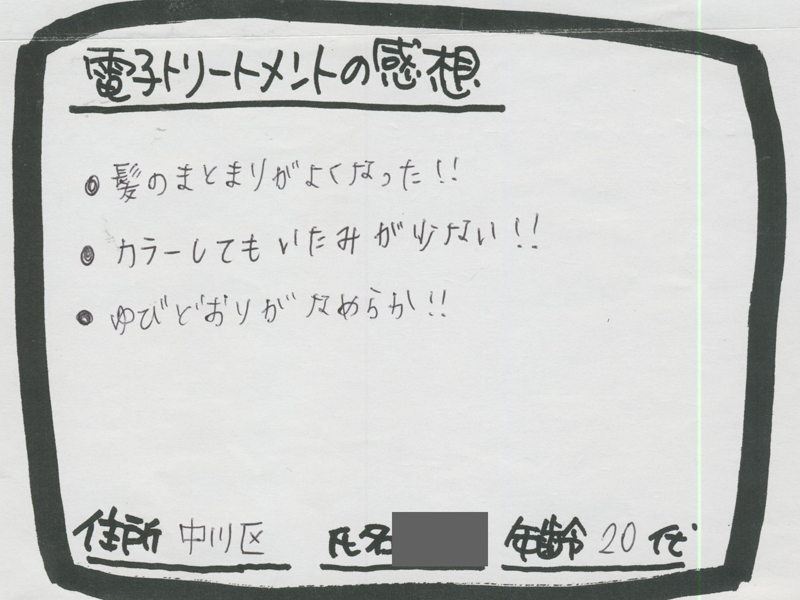 電子トリートメントの感想
● 髪のまとまりがよくなった!!
● カラーしてもいたみが少ない!!
● ゆびどおりがなめらか!!
住所 中川区 氏名 年齢 20代